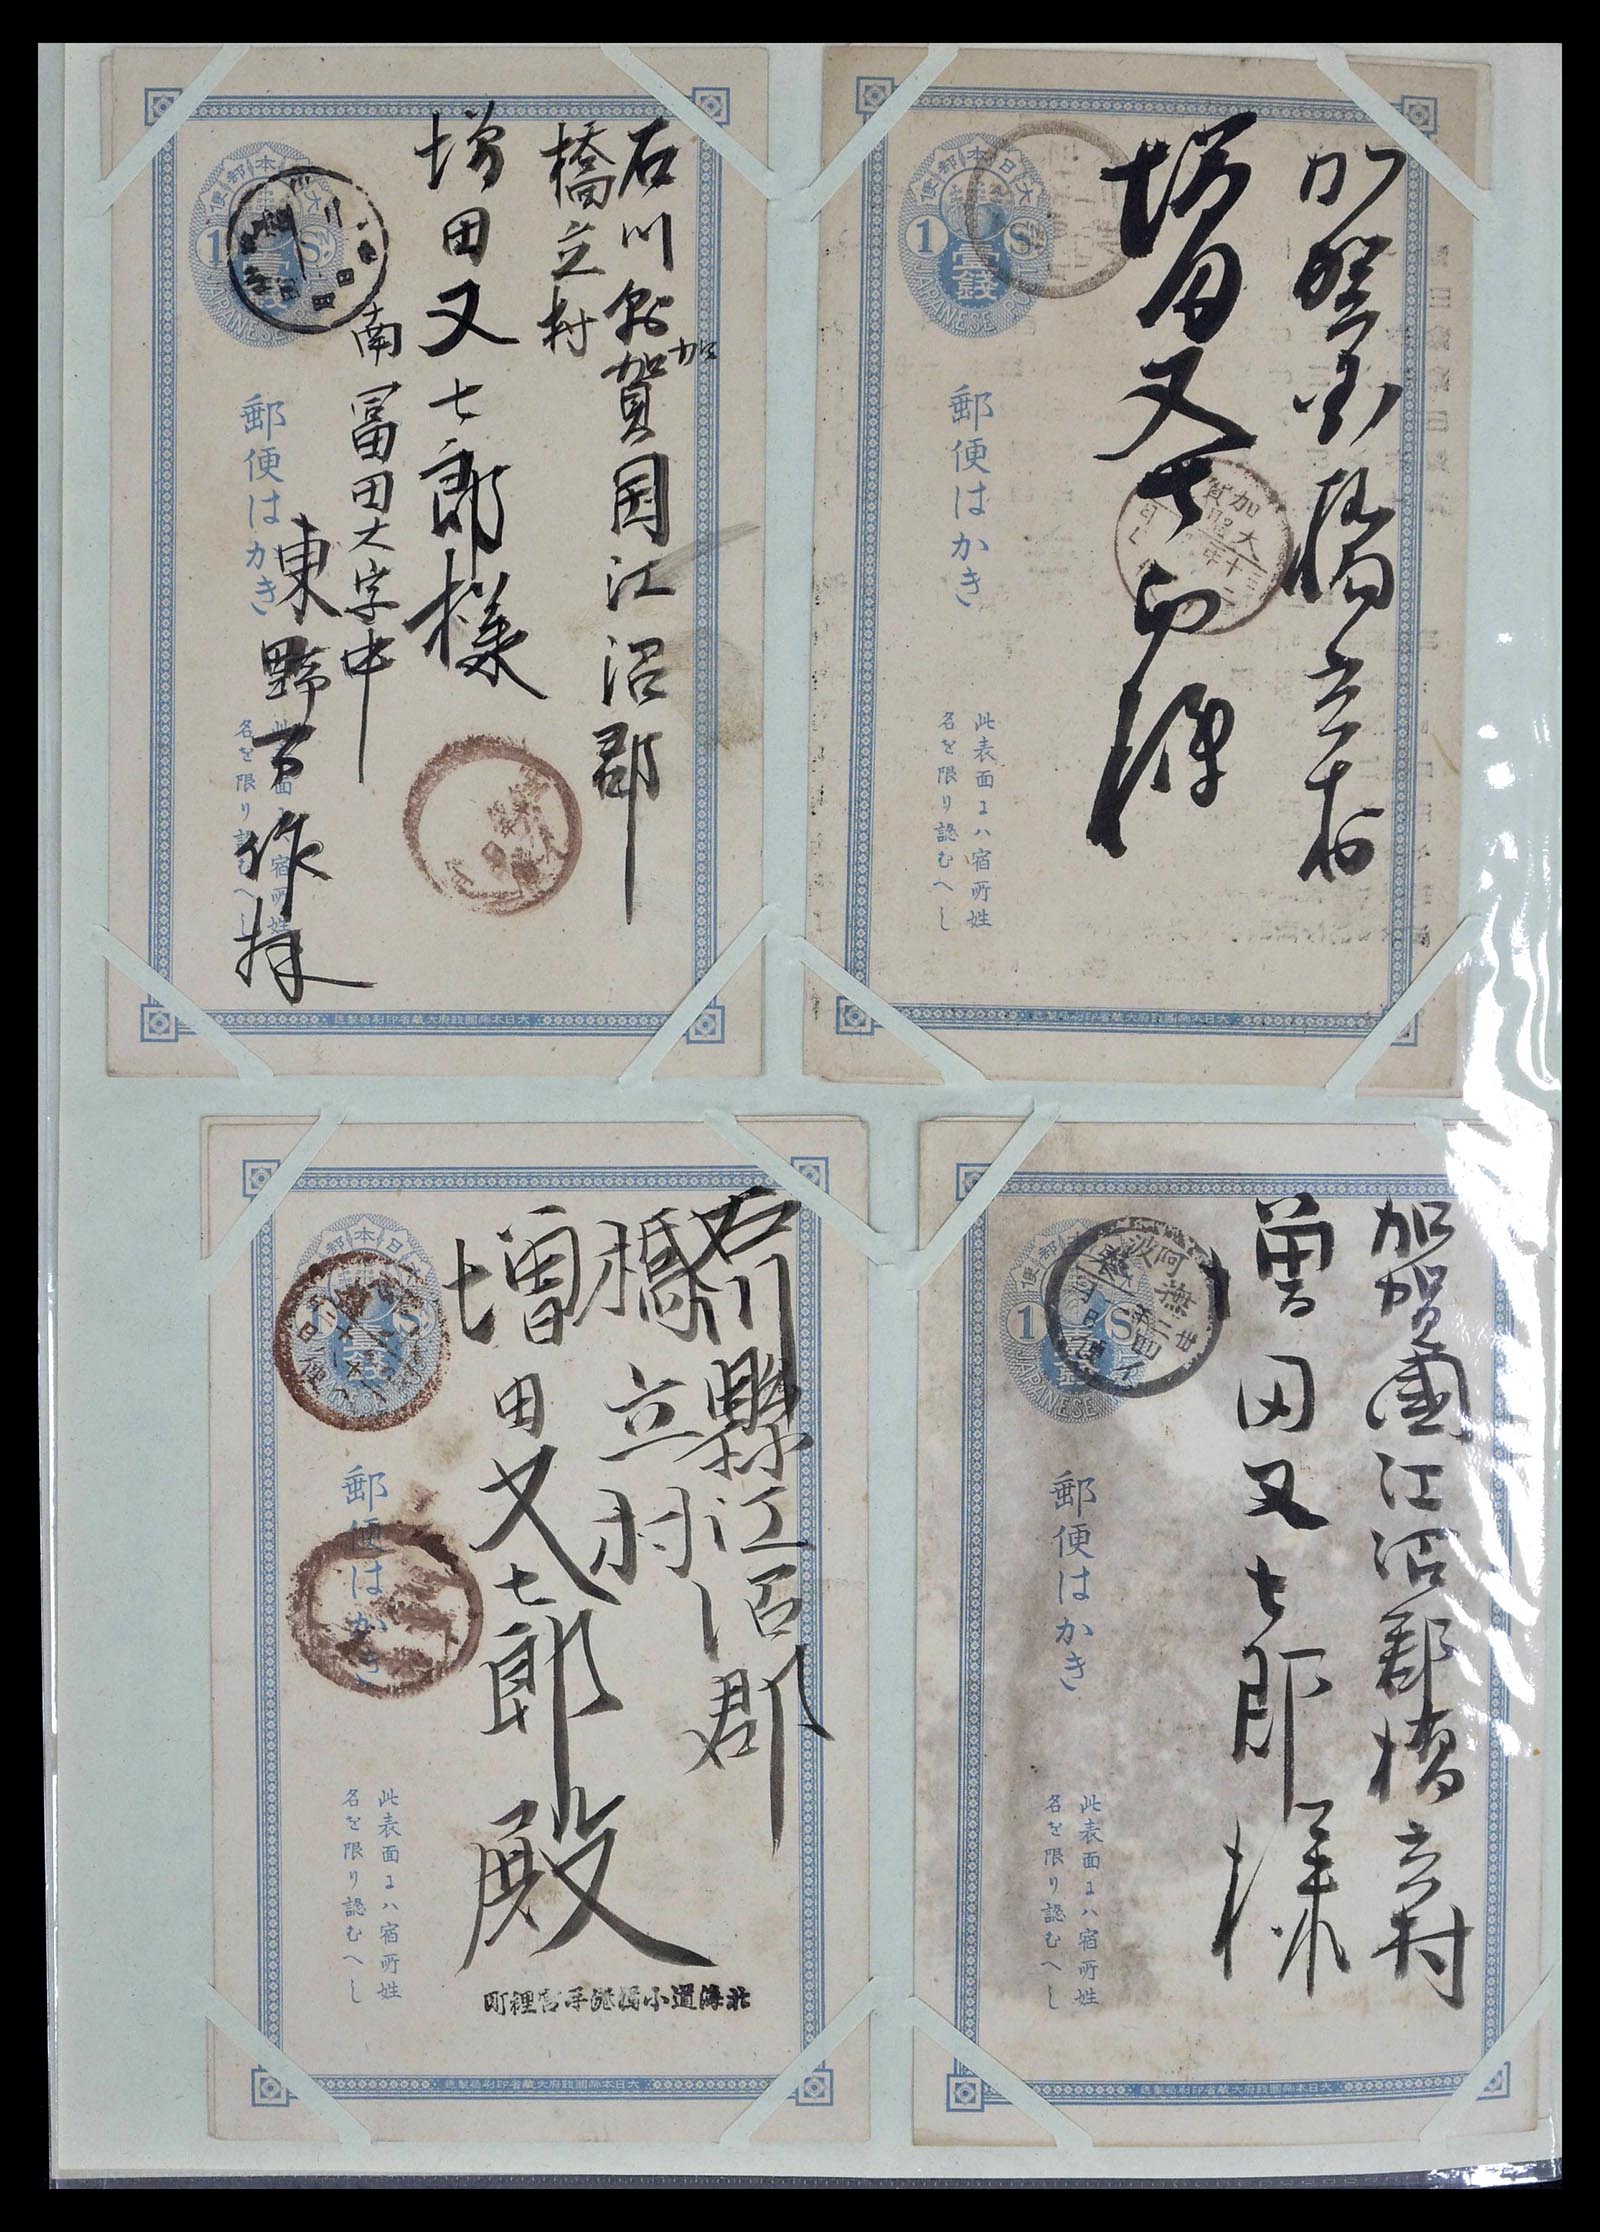 石川縣加賀国江沼郡
橋立村
増田又七郎様
南冨田大字中
東野万作拝
大日本郵便
1 S.
壹銭
JAPANESE
郵便はかき
此表面ニハ宿所姓
名を限り認むへし
大日本帝國政府大藏省印刷局製造
加賀国橋立村
増田又七郎様
大日本郵便
1 S.
壹銭
JAPANESE
加賀
大
郵便はかき
此表面ニハ宿所姓
名を限り認むへし
大日本帝國政府大藏省印刷局製造
石川縣江沼郡
橋立村
増田又七郎殿
本郵
1 S.
壹銭
郵便はかき
此表面ニハ宿所姓
名を限り認むへし
北海道小樽港手宮裡町
大日本帝國政府大藏省印刷局製造
加賀國江沼郡橋立村
増田又七郎様
1 S.
壹銭
JAPANESE
阿波
撫
郵便はかき
此表面ニハ宿所姓
名を限り認むへし
大日本帝國政府大藏省印刷局製造